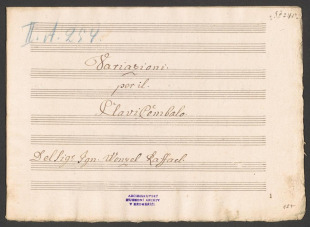 II. A. 257.
Variazioni.
per il.
Clavi Cembalo
Del Sigre Ign. Wenzel Raffael.
1